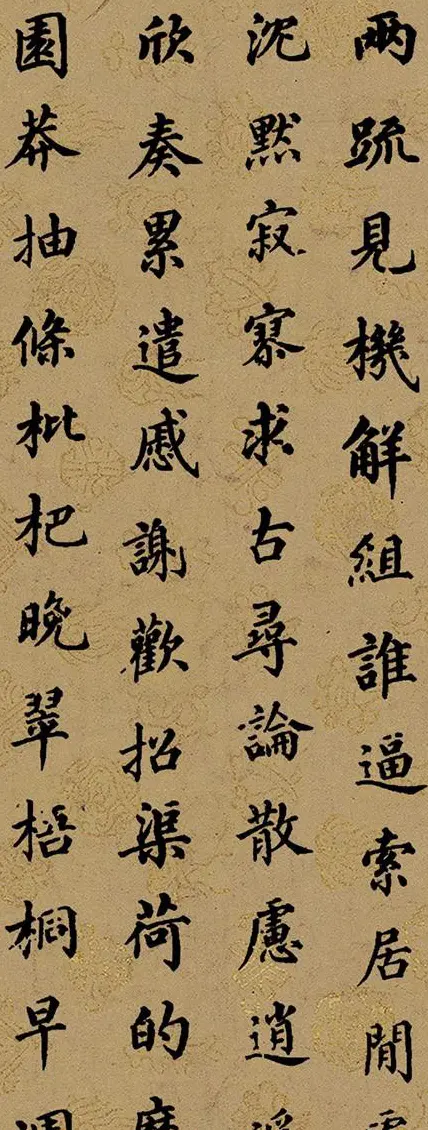 兩疏見機解組誰逼索居閒
沉默寂寥求古尋論散慮逍
欣奏累遣慼謝歡招渠荷的
園莽抽條枇杷晚翠梧桐早